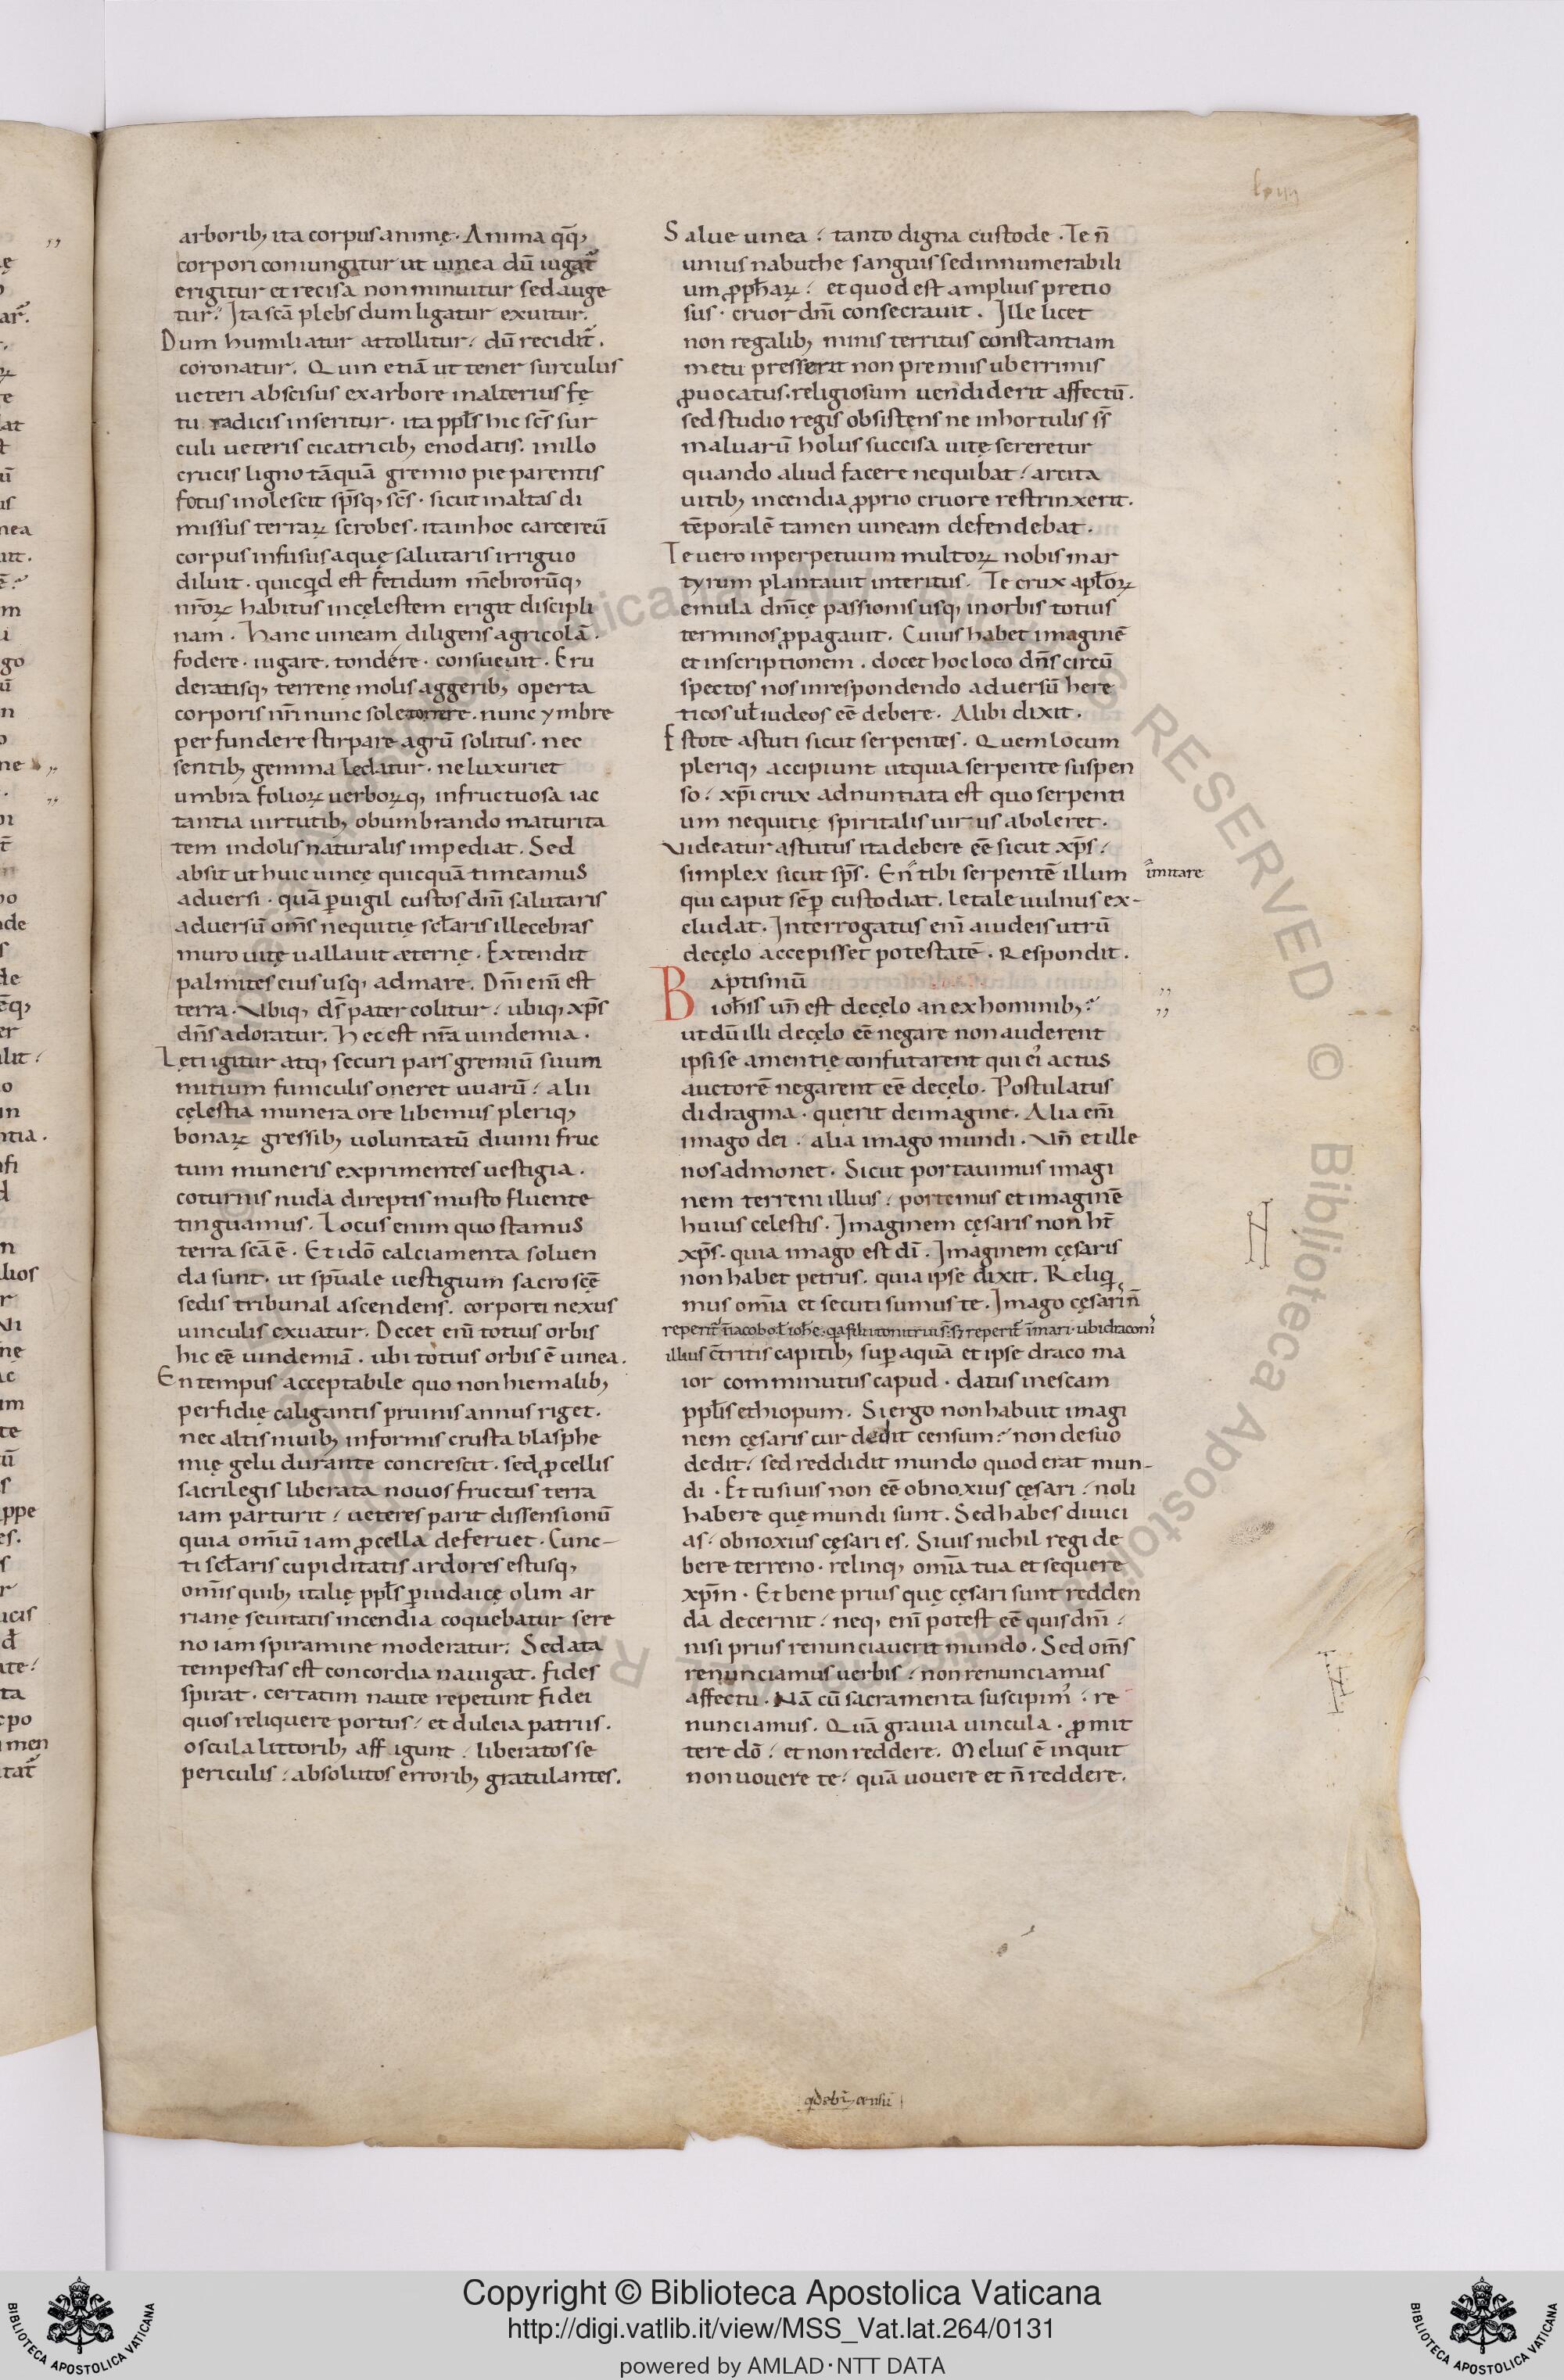 lxiiii
arborib; ita corpus animę. Anima qq̄;
corpori coniungitur ut uinea dū iugat̄
erigitur et recisa non minuitur sed auge
tur. Ita scā plebs dum ligatur exuitur.
Dum humiliatur attollitur. dū recidit̄.
coronatur. Quin etiā ut tener surculus
ueteri abscisus ex arbore in alterius fę
tu radicis inseritur. ita ppls̄ hic scs̄ sur
culi ueteris cicatricib; enodatis. in illo
crucis ligno tāquā gremio pie parentis
fotus inolescit sps̄q; scs̄. sicut in altas di
missus terraꝝ scrobes. ita in hoc carcereū
corpus infusus aquę salutaris irriguo
diluit. quicq'd est fetidum m̄ebrorūq;
nr̄oꝝ habitus in cęlestem erigit discipli
nam. Hanc uineam diligens agricola.
fodere. iugare. tondere. consueuit. Eru
deratisq; terrenę molis aggerib; operta
corporis nr̄i nunc sole torrere. nunc ymbre
perfundere stirpare agrū solitus. nec
sentib; gemma ledatur. ne luxuriet
umbra folioꝝ uerboꝝq; infructuosa iac
tantia uirtutib; obumbrando maturita
tem indolis naturalis impediat. Sed
absit ut huic uineę quicquā timeamus
aduersi. quā ꝑuigil custos dn̄i salutaris
aduersū om̄s nequitię scl̄aris illecebras
muro uitę uallauit æternę. Extendit
palmites eius usq; ad mare. Dn̄i eni᷑ est
terra. Vbiq; ds̄ pater colitur. ubiq; xp̄s
dn̄s adoratur. Hec est nr̄a uindemia.
Leti igitur atq; securi pars gremiū suum
mitium funiculis oneret uuarū. alii
cęlestia munera ore libemus pleriq;
bonaꝝ gressib; uoluntatū diuini fruc
tum muneris exprimentes uestigia.
coturnis nuda direptis musto fluente
tinguamus. Locus enim quo stamus
terra scā ē. Et idō calciamenta soluen
da sunt. ut spu̅ale uestigium sacroscę̄
sedis tribunal ascendens. corporei nexus
uinculis exuatur. Decet eni᷑ totius orbis
hic eē uindemiā. ubi totius orbis ē uinea.
En tempus acceptabile quo non hiemalib;
perfidię caligantis pruinis annus riget.
nec altis niuib; informis crusta blasphe
mię gelu durante concrescit. sed ꝓcellis
sacrilegis liberata nouos fructus terra
iam parturit. ueteres parit dissensionū
quia omiū iam ꝓcella deferuet. Cunc-
ti scl̄aris cupiditatis ardores estusq;
om̄is quib; italię ppls̄ ꝑ iudaicę olim ar
rianę seuitatis incendia coquebatur sere
no iam spiramine moderatur. Sedata
tempestas est concordia nauigat. fides
spirat. certatim naute repetunt fidei
quos reliquere portus. et dulcia patriis.
oscula littorib; affigunt. liberatos se
periculis. absolutos errorib; gratulantes.
Salue uinea. tanto digna custode. Te n̄
unius nabuthe sanguis sed innumerabili
um ꝓph̄aꝝ. et quod est amplius pretio
sus. cruor dn̄i consecrauit. Ille licet
non regalib; minis territus constantiam
metu presserit non premiis uberrimis
ꝓuocatus. religiosum uendiderit affectū.
sed studio regis obsistens ne in hortulis ss̄
maluarū holus succisa uite sereretur
quando aliud facere nequibat. arcita
uitib; incendia ꝓprio cruore restrinxerit.
tēporalē tamen uineam defendebat.
Te uero in perpetuum multoꝝ nobis mar
tyrum plantauit interitus. Te crux apl̄oꝝ
emula dn̄icę passionis usq; in orbis totius
terminos ꝓpagauit. Cuius habet imaginē
et inscriptionem. docet hoc loco dn̄s circū
spectos nos in respondendo aduersū here
ticos ul̄ iudeos eē debere. Alibi dixit.
Estote astuti sicut serpentes. Quem locum
pleriq; accipiunt ut quia serpente suspen
so. xp̄i crux adnuntiata est quo serpenti
um nequitię spiritalis uirus aboleret.
Videatur astutus ita debere eē sicut xp̄s.
simplex sicut sps̄. En tibi serpentē illum
imitare
qui caput sēꝑ custodiat. letale uulnus ex-
cludat. Interrogatus eni᷑ a iudeis utrū
de cęlo accepisset potestatē. Respondit.
Baptismū
ioh̄is un̄ est de cęlo an ex hominib;.
ut dū illi de cęlo eē negare non auderent
ipsi se amentię confutarent qui ei᷒ actus
auctorē negarent eē de cęlo. Postulatus
didragma. querit de imagine. Alia eni᷑
imago dei. alia imago mundi. Vn̄ et ille
nos admonet. Sicut portauimus imagi
nem terreni illius. portemus et imaginē
huius celestis. Imaginem cęsaris non ht̄
xp̄s. quia imago est dī. Imaginem cęsaris
non habet petrus. quia ipse dixit. Reliq'
mus omīa et secuti sumus te. Imago cęsari n̄
illius c̄tritis capitib; suꝑ aquā et ipse draco ma
ior comminutus capud. datus in escam
ppl̄is ethiopum. Si ergo non habuit imagi
nem cęsaris cur dedit censum. non de suo
dedit. sed reddidit mundo quod erat mun-
di. Et tu si uis non eē obnoxius cęsari. noli
habere quę mundi sunt. Sed habes diuici
as. obnoxius cęsari es. Si uis nichil regi de
bere terreno. relinq; omīa tua et sequere
xp̄m. Et bene prius quę cęsari sunt redden
da decernit. neq; eni᷑ potest eē quis dn̄i.
nisi prius renunciauerit mundo. Sed om̄s
renunciamus uerbis. non renunciamus
affectu. Nā cū sacramenta suscipim᷒. re
nunciamus. Quā grauia uincula. ꝓmit
tere dō. et non reddere. Melius ē inquit
non uouere te. quā uouere et n̄ reddere.
Copyright © Biblioteca Apostolica Vaticana
http://digi.vatlib.it/view/MSS_Vat.lat.264/0131
powered by AMLAD·NTT DATA
BIBLIOTECA APOSTOLICA VATICANA
BIBLIOTECA APOSTOLICA VATICANA